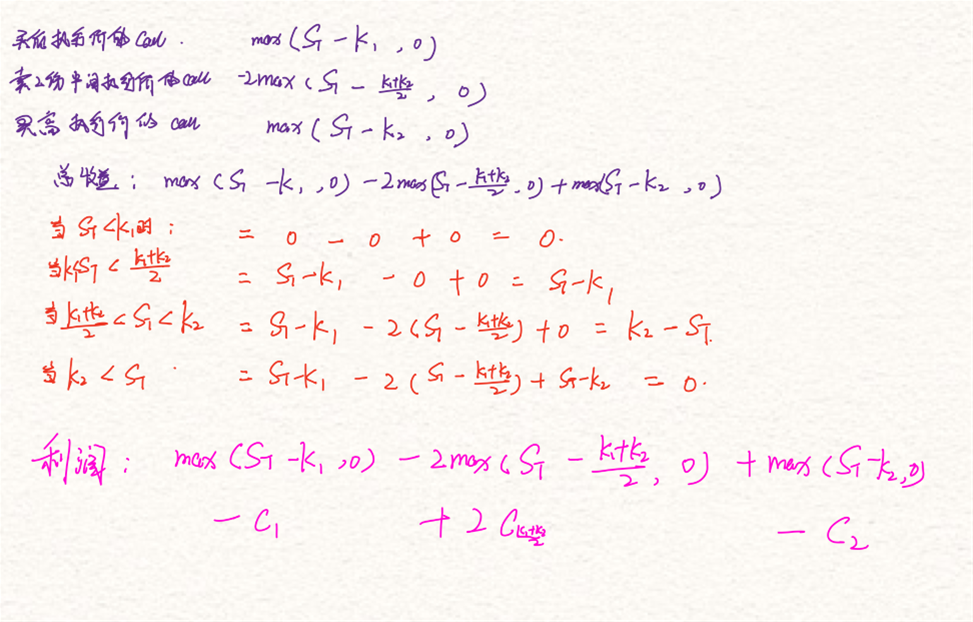 买低执行价的call. max(S_T - K_1, 0)
卖2份中间执行价的call -2max(S_T - \frac{K_1+K_2}{2}, 0)
买高执行价的call max(S_T - K_2, 0)
总收益: max(S_T - K_1, 0) - 2max(S_T - \frac{K_1+K_2}{2}, 0) + max(S_T - K_2, 0)
当 S_T < K_1时: = 0 - 0 + 0 = 0.
当K_1<S_T < \frac{K_1+K_2}{2} = S_T - K_1 - 0 + 0 = S_T - K_1
当\frac{K_1+K_2}{2} < S_T < K_2 = S_T - K_1 - 2(S_T - \frac{K_1+K_2}{2}) + 0 = K_2 - S_T.
当 K_2 < S_T = S_T - K_1 - 2(S_T - \frac{K_1+K_2}{2}) + S_T - K_2 = 0.
利润: max(S_T - K_1, 0) - 2max(S_T - \frac{K_1+K_2}{2}, 0) + max(S_T - K_2, 0)
- C_1 + 2C_{\frac{K_1+K_2}{2}} - C_2